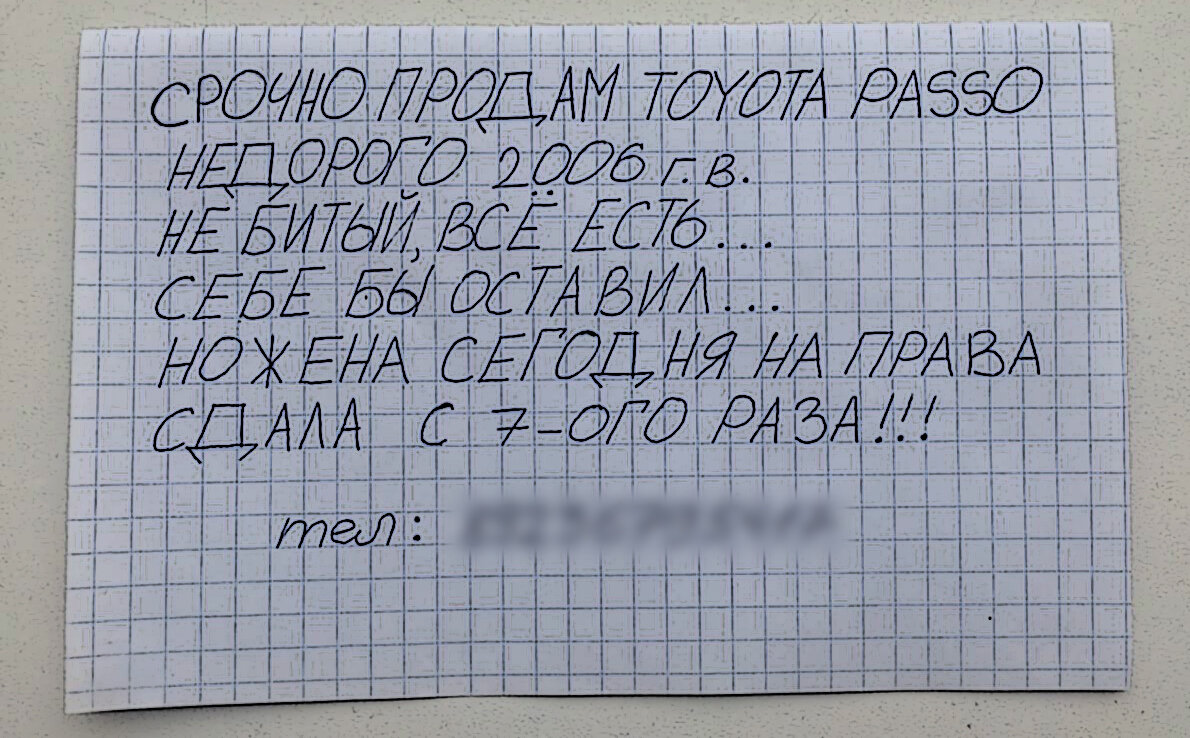 СРОЧНО ПРОДАМ TOYOTA PASSO
НЕДОРОГО 2006 г.в.
НЕ БИТЫЙ, ВСЁ ЕСТЬ...
СЕБЕ БЫ ОСТАВИЛ...
НОЖЕНА СЕГОДНЯ НА ПРАВА
СДАЛА С 7-ОГО РАЗА!!!
тел: